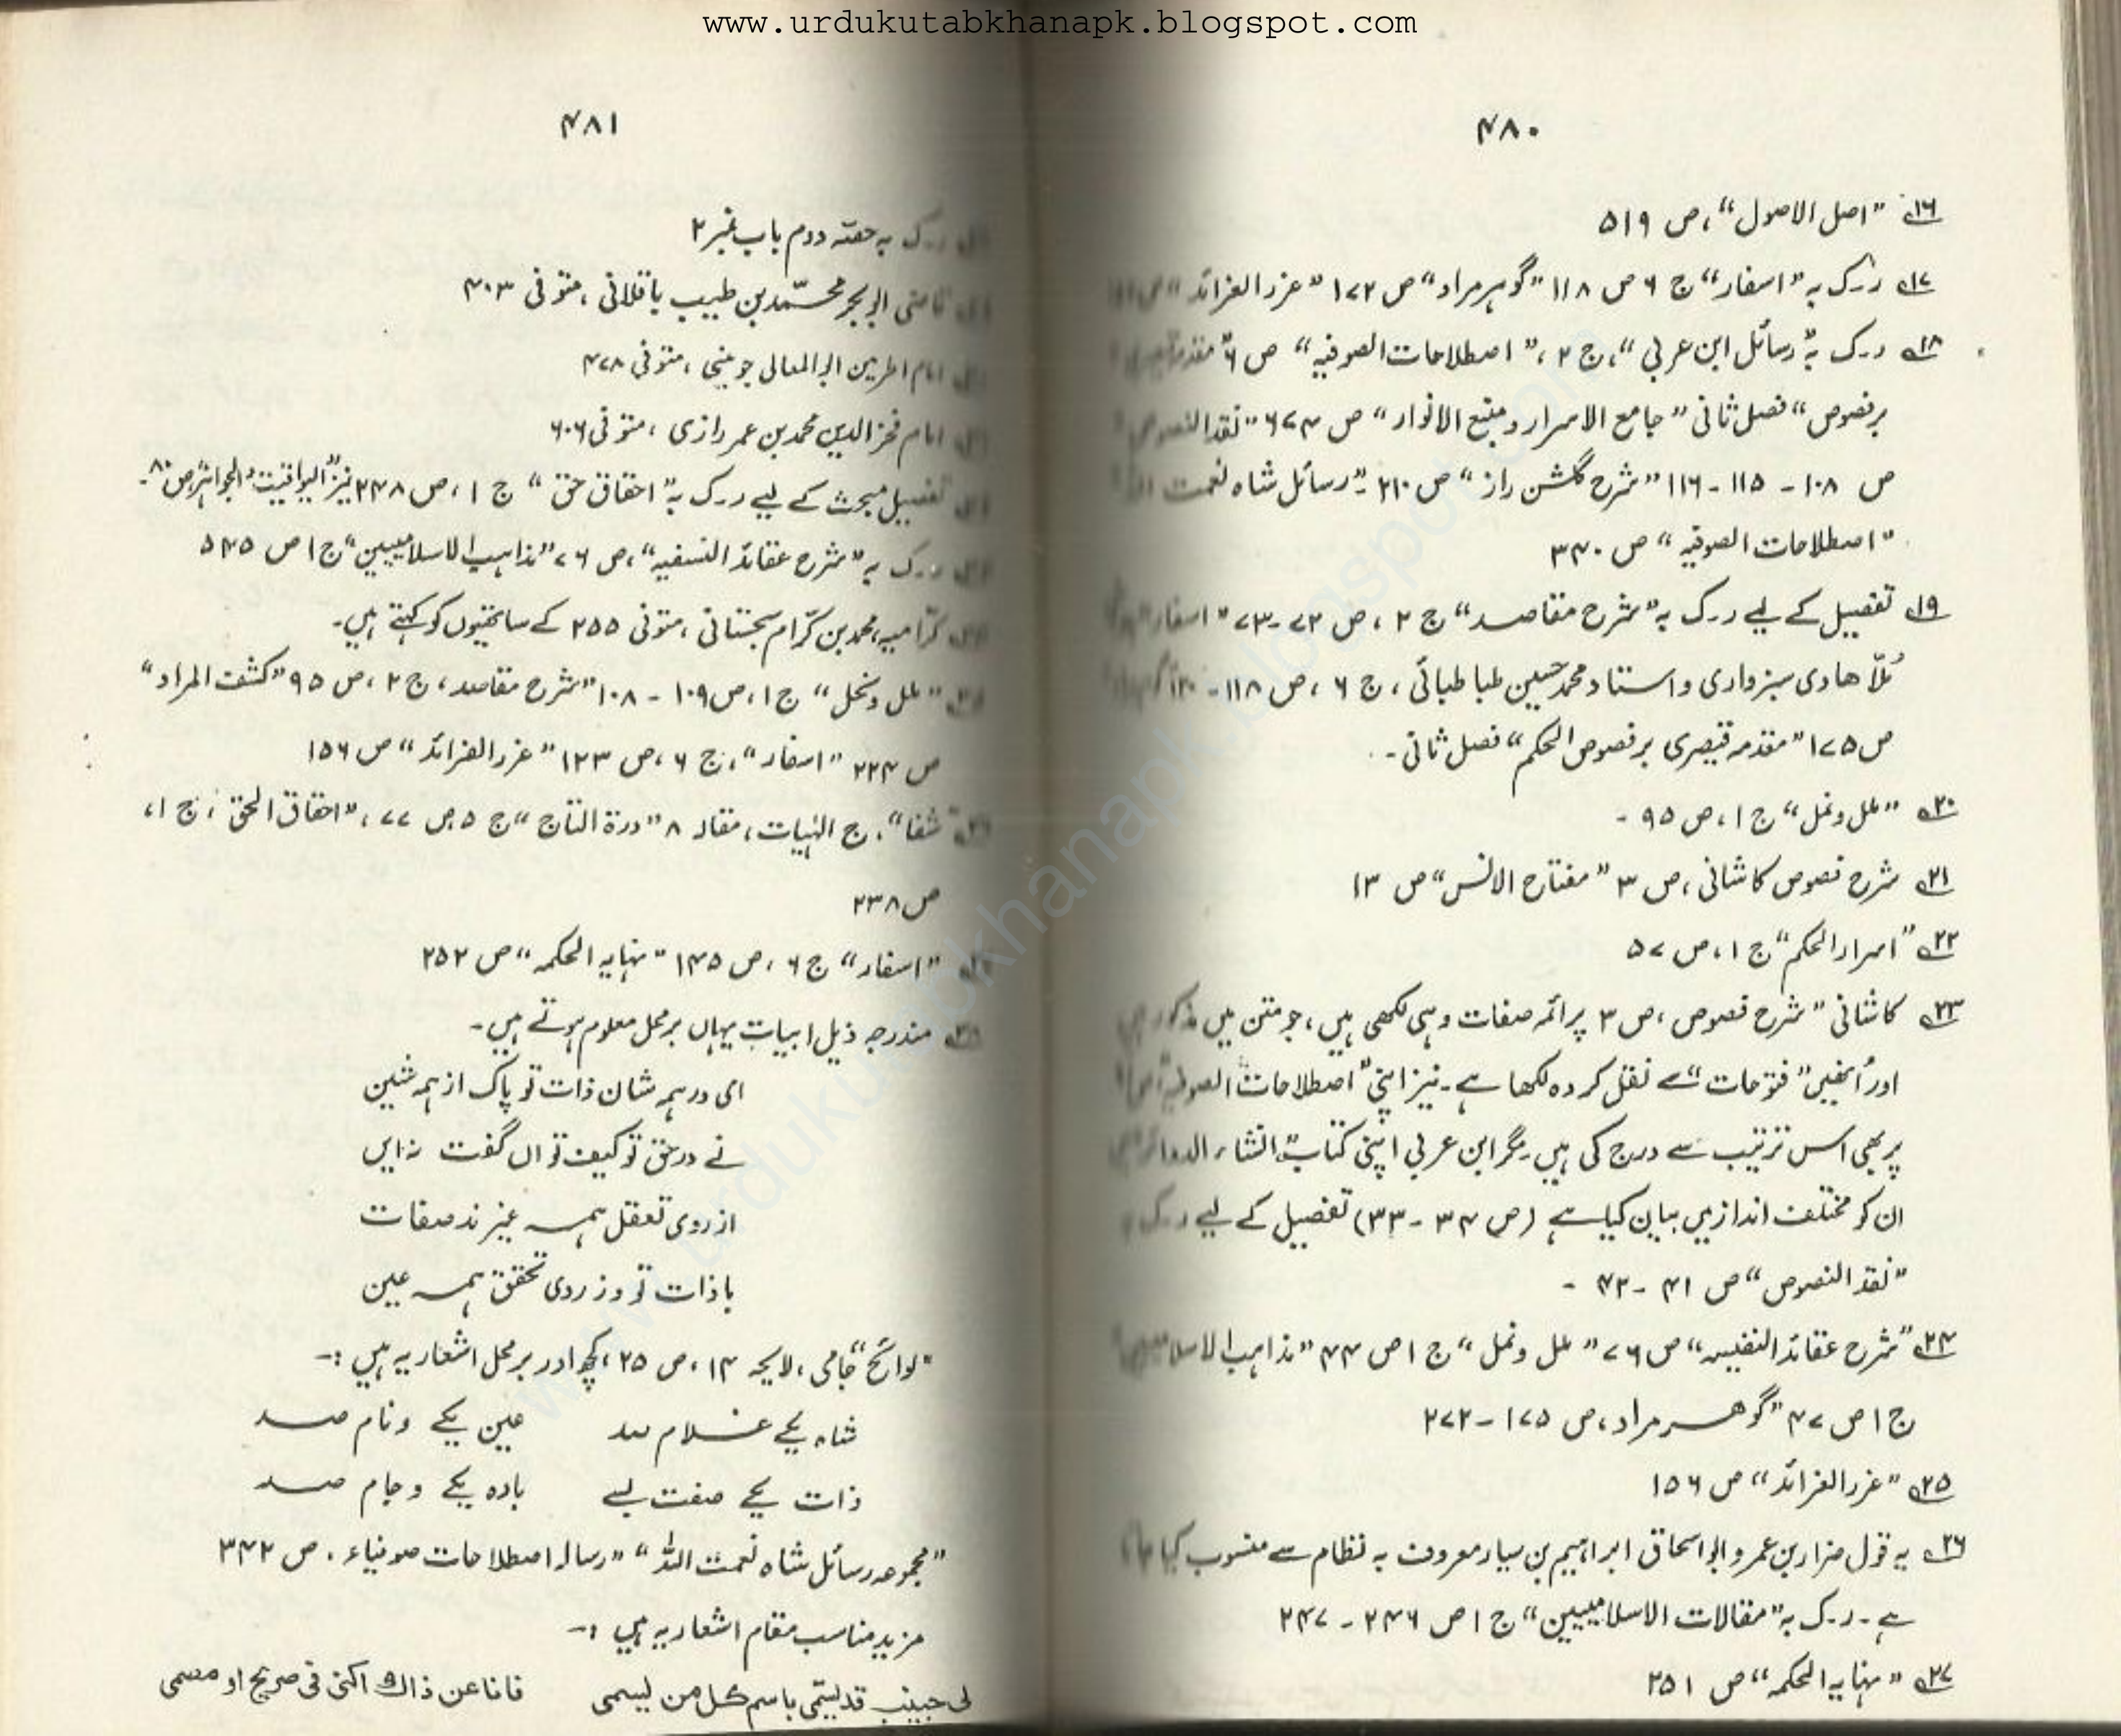 www.urdukutabkhanapk.blogspot.com
۴۸۰
۱۶ "اصل الاصول"، ص ۵۱۹
۱۷ ر۔ک بہ "اسفار" ج ۶ ص ۱۱۸ "گوہر مراد" ص ۱۷۲ "غرر الفرائد" ص
۱۸ ر۔ک بہ "رسائل ابن عربی"، ج ۲، "اصطلاحات الصوفیہ" ص ۶ "مقدمہ قیصری
بر فصوص" فصل ثانی "جامع الاسرار و منبع الانوار" ص ۶۷۴ "نقد النصوص"
ص ۱۰۸ - ۱۱۵ - ۱۱۶ "شرح گلشن راز" ص ۲۱۰۔ "رسائل شاہ نعمت اللہ"
"اصطلاحات الصوفیہ" ص ۳۴۰
۱۹ تفصیل کے لیے ر۔ک بہ "شرح مقاصد" ج ۲، ص ۷۲-۷۳ "اسفار"
مُلّا ھادی سبزواری و استاد محمد حسین طباطبائی، ج ۶، ص ۱۱۸ - ۱۲۰
ص ۱۷۵ "مقدمہ قیصری بر فصوص الحکم" فصل ثانی۔
۲۰ "ملل و نمل" ج ۱، ص ۹۵ -
۲۱ شرح فصوص کاشانی، ص ۳ "مفتاح الانس" ص ۱۳
۲۲ "اسرار الحکم" ج ۱، ص ۵۷
۲۳ کاشانی "شرح فصوص، ص ۳ پر ائمہ صفات وہی لکھی ہیں، جو متن میں مذکور ہیں
اور اُنھیں "فتوحات" سے نقل کردہ لکھا ہے۔ نیز اپنی "اصطلاحات الصوفیہ"
پر بھی اسی ترتیب سے درج کی ہیں۔ مگر ابن عربی اپنی کتاب "انشاء الدوائر" میں
ان کو مختلف انداز میں بیان کیا ہے (ص ۳۴ - ۳۳) تفصیل کے لیے ر۔ک
"نقد النصوص" ص ۴۱ - ۴۲ -
۲۴ "شرح عقائد النفیسہ" ص ۷۶ "ملل و نمل" ج ۱ ص ۴۴ "مذاہب الاسلامیین"
ج ۱ ص ۴۷ "گوھر مراد، ص ۱۷۵ - ۲۷۲
۲۵ "غرر الفرائد" ص ۱۵۶
۲۶ یہ قول ضرار بن عمر و ابواسحاق ابراہیم بن سیار معروف بہ نظام سے منسوب کیا جاتا
ہے۔ ر۔ک بہ "مقالات الاسلامیین" ج ۱ ص ۲۴۶ - ۲۴۷
۲۷ "نہایہ الحکمہ" ص ۲۵۱
۴۸۱
ر۔ک بہ حصّہ دوم باب نمبر ۲
قاضی ابوبکر محمّد بن طیب باقلانی، متوفی ۴۰۳
امام الحرمین ابوالمعالی جوینی، متوفی ۴۷۸
امام فخرالدین محمد بن عمر رازی، متوفی ۶۰۶
تفصیل مبحث کے لیے ر۔ک بہ "احقاق حق" ج ۱، ص ۲۴۸ نیز "الیواقیت والجواہر" ص ۸۰۔
ر۔ک بہ "شرح عقائد النسفیہ"، ص ۷۶ "مذاہب الاسلامیین" ج ۱ ص ۵۴۵
کرّامیہ، محمد بن کرّام سجستانی، متوفی ۲۵۵ کے ساتھیوں کو کہتے ہیں۔
"ملل و نحل" ج ۱، ص ۱۰۹ - ۱۰۸ "شرح مقاصد، ج ۲، ص ۹۵ "کشف المراد"
ص ۲۲۴ "اسفار"، ج ۶، ص ۱۲۳ "غرر الفرائد" ص ۱۵۶
"شفا"، ج الٰہیات، مقالہ ۸ "درۃ التاج" ج ۵ ص ۷۷، "احقاق الحق، ج ۱،
ص ۲۳۸
"اسفار" ج ۶، ص ۱۴۵ "نہایہ الحکمہ" ص ۲۵۲
مندرجہ ذیل ابیات یہاں برمحل معلوم ہوتے ہیں۔
ای در ہمہ شان ذات تو پاک از ہمہ شین
نے در حق تو کیف تواں گفت نہ این
از روی تعقل ہمہ غیرند صفات
با ذات تو وز روی تحقق ہمہ عین
"لوائح" جامی، لایحہ ۱۴، ص ۲۵، کچھ اور برمحل اشعار یہ ہیں :-
شاہ یکے غلام صد عین یکے و نام صد
ذات یکے صفت بسے بادہ یکے و جام صد
"مجموعہ رسائل شاہ نعمت اللہ" "رسالہ اصطلاحات صوفیاء، ص ۳۴۲
مزید مناسب مقام اشعار یہ ہیں :-
لی حبیب قد یسمّی باسم کل من یسمی فانا عن ذاک اکنی فی صریح او معمی